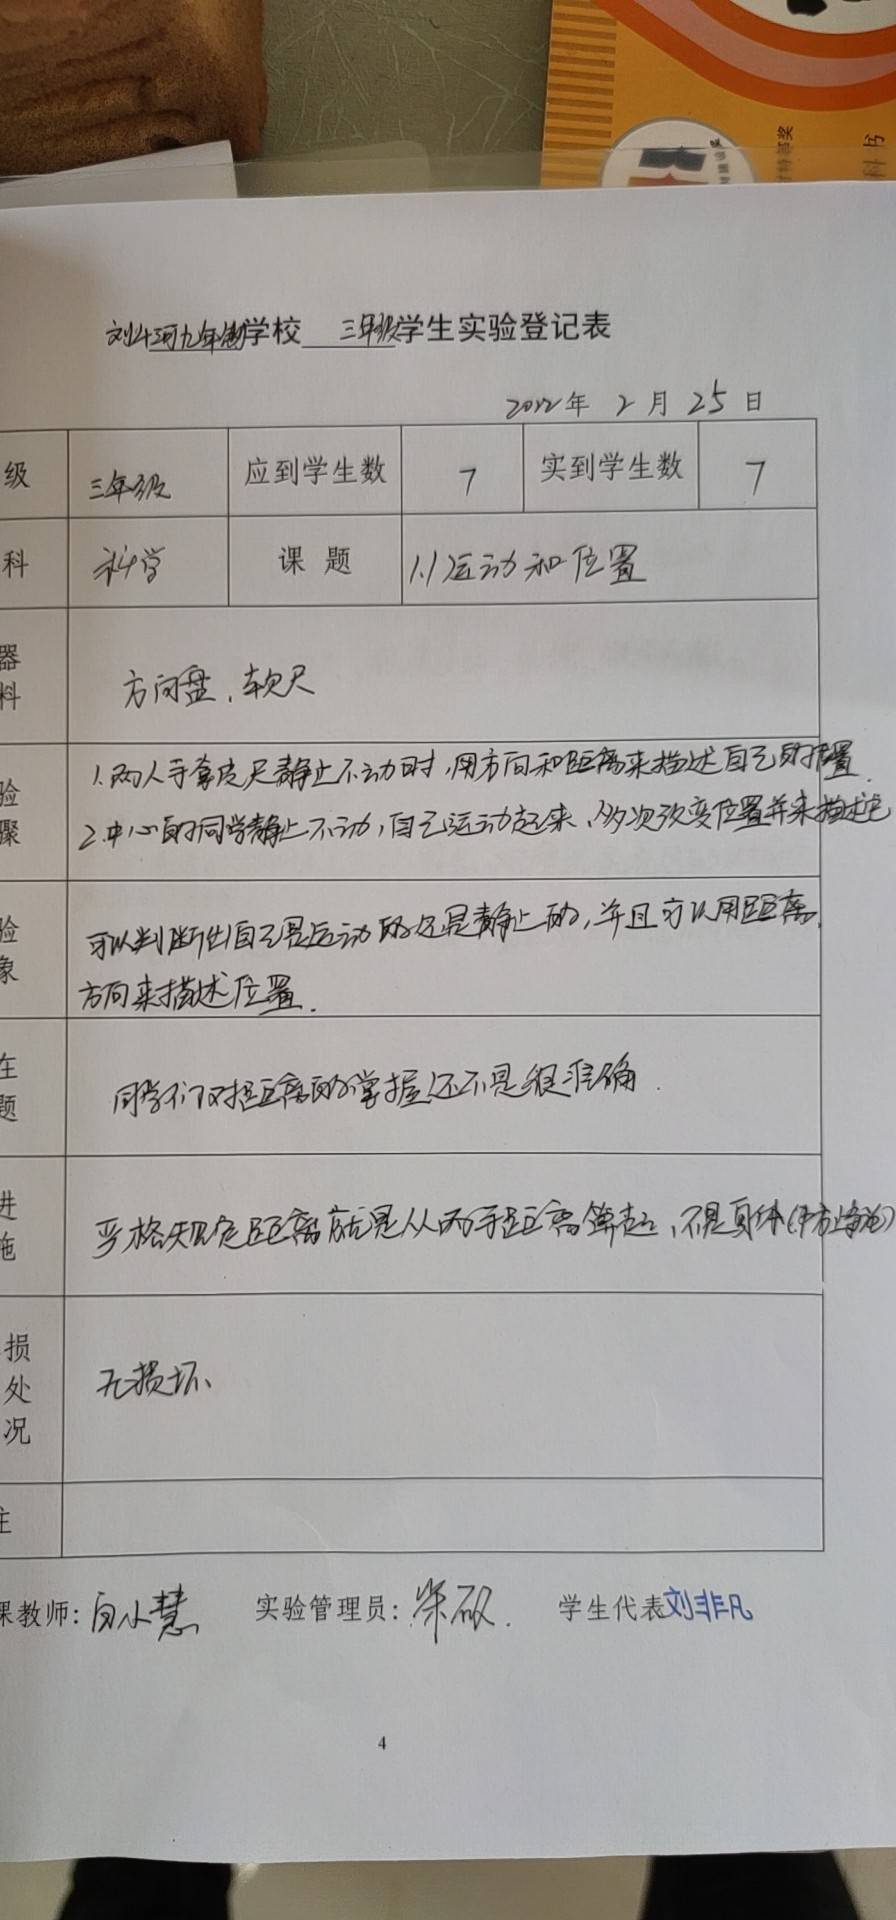 科书
刘斗河九年制学校 三年级学生实验登记表
2022年 2月 25日
级 三年级 应到学生数 7 实到学生数 7
科 科学 课题 1.1运动和位置
器料 方向盘、软尺
验骤 1.两人手拿皮尺静止不动时,用方向和距离来描述自己的位置.
2.中心的同学静止不动,自己运动起来、多次改变位置并来描述它
验象 可以判断出自己是运动的还是静止的,并且可以用距离、
方向来描述位置.
在题 同学们对距离的掌握还不是很准确.
进施 严格规定距离就是从两手距离算起、不是身体
损处况 无损坏、
主
课教师:白小慧 实验管理员: 学生代表刘非凡
4